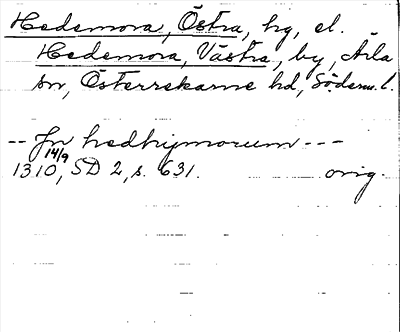 Hedemora, Östra, hg, el.
Hedemora, Västra, by, Ärla
sn, Österrekarne hd, Söderm. l.
-- Jn hedhymorum ---
14/9
1310, SD 2, s. 631. orig.